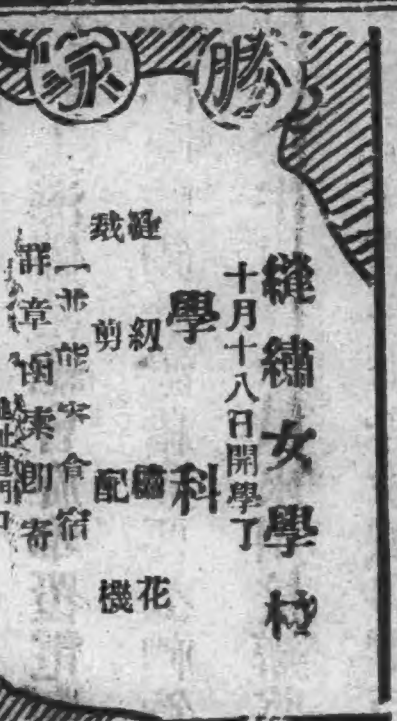 勝家
縫繡女學校
十月十八日開學了
學科
縫紉 繡花
裁剪 配機
一並能寄食宿
詳章函索即寄